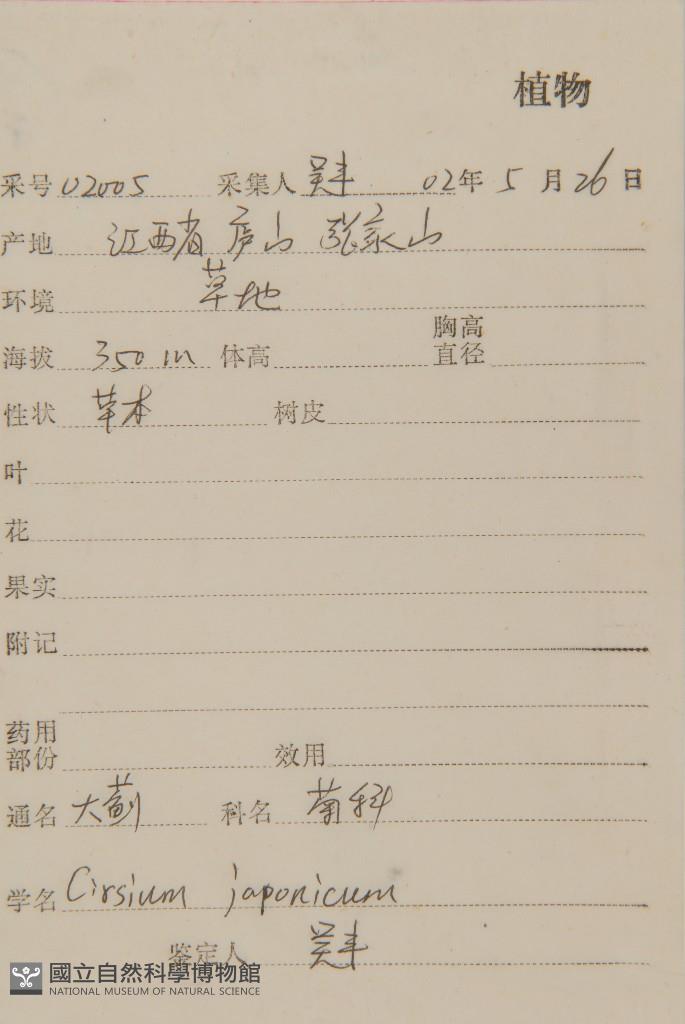 植物
采号 02005 采集人 吴丰 02年 5 月 26 日
产地 江西省 庐山 张家山
环境 草地
海拔 350 m 体高 胸高直径
性状 草本 树皮
叶
花
果实
附记
药用部份 效用
通名 大蓟 科名 菊科
学名 Cirsium japonicum
鉴定人 吴丰
國立自然科學博物館
NATIONAL MUSEUM OF NATURAL SCIENCE